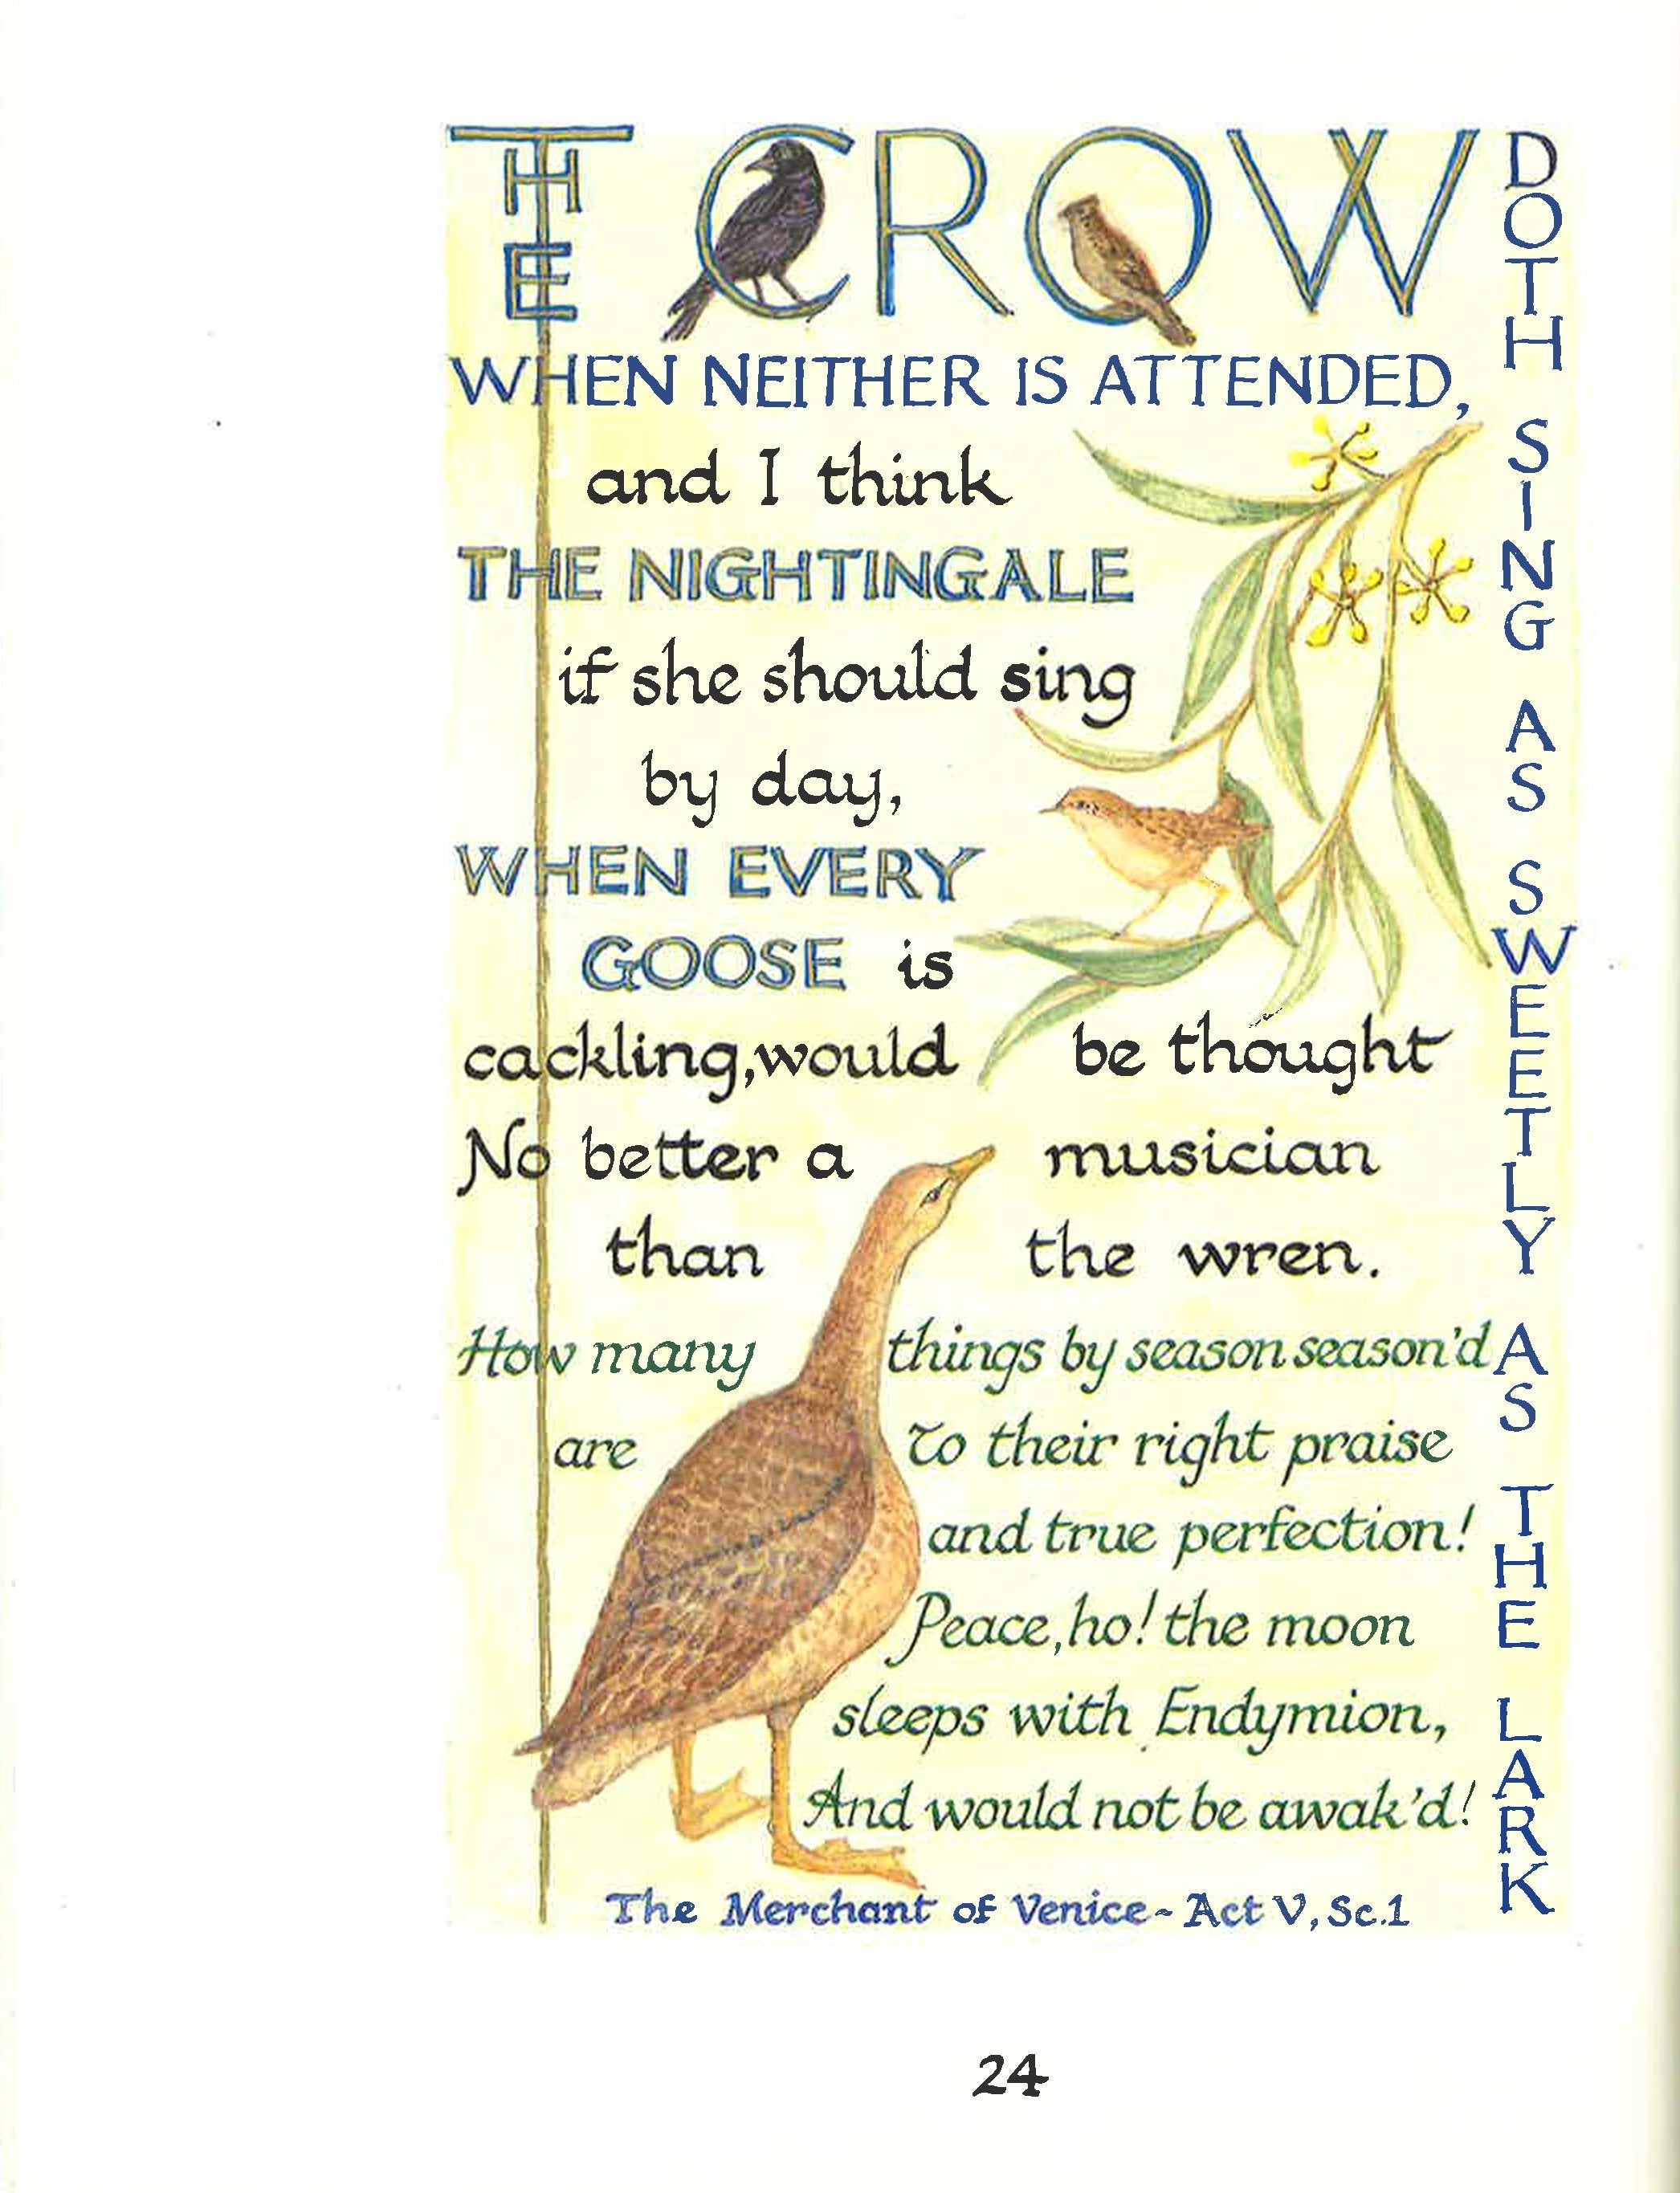 THE CROW
DOTH SING AS SWEETLY AS THE LARK
WHEN NEITHER IS ATTENDED,
and I think
THE NIGHTINGALE
if she should sing
by day,
WHEN EVERY
GOOSE is
cackling, would be thought
No better a musician
than the wren.
How many things by season season'd
are To their right praise
and true perfection!
Peace, ho! the moon
sleeps with Endymion,
And would not be awak'd!
The Merchant of Venice ~ Act V, Sc. 1
24